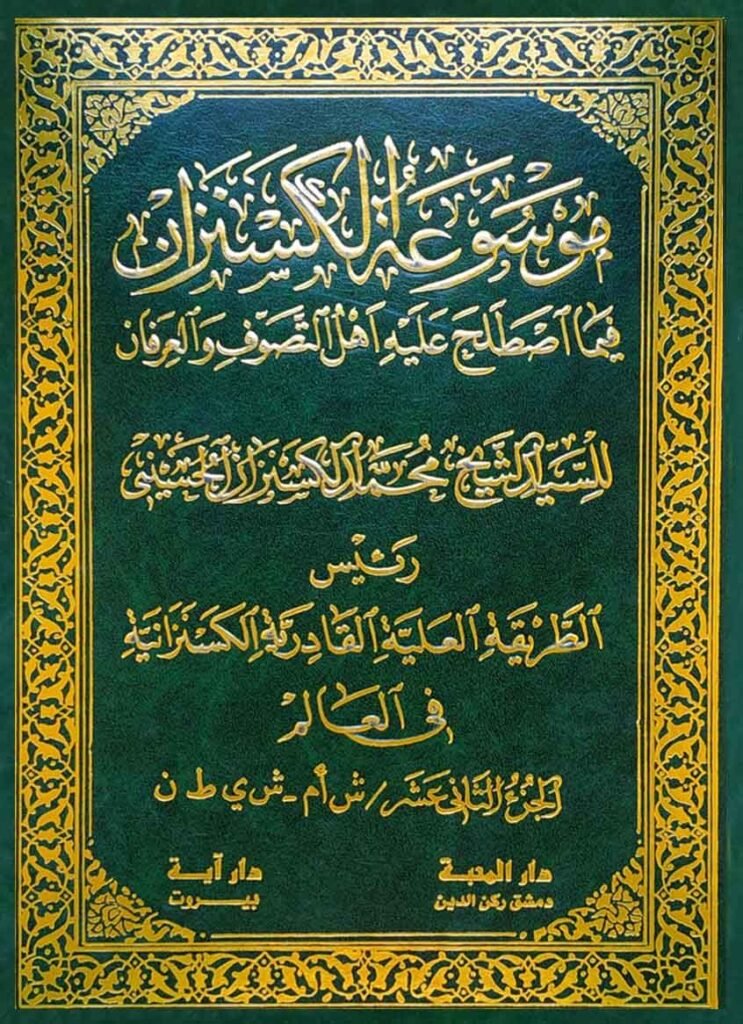 موسوعة الكسنزان
فيما اصطلح عليه أهل التصوف والعرفان
للسيد الشيخ محمد الكسنزان الحسيني
رئيس
الطريقة العلية القادرية الكسنزانية
في العالم
الجزء الثاني عشر / ش أم - ش ي ط ن
دار المحبة
دمشق ركن الدين
دار آية
بيروت